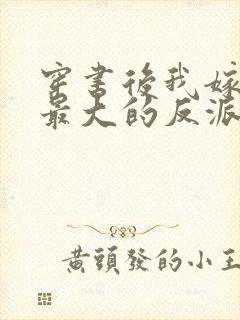 穿書後我嫁
最大的反派
黃頭發的小王